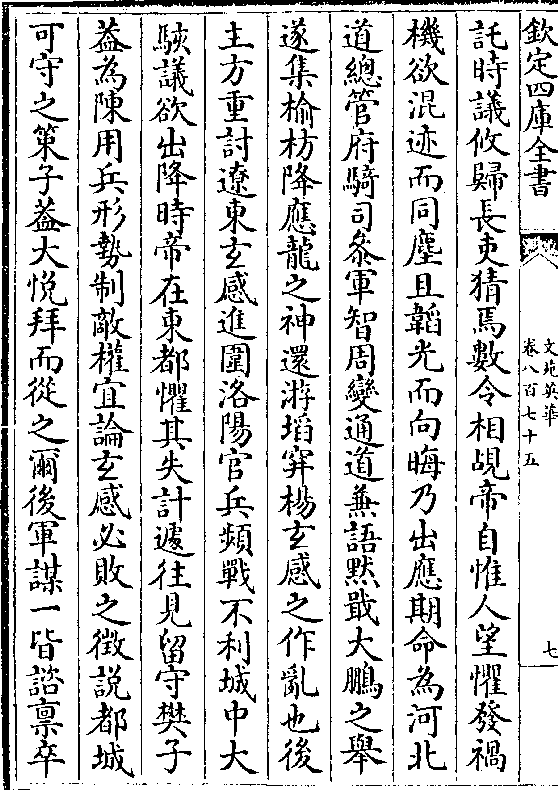 欽定四庫全書
文苑英華
卷八百七十五
七
託時議攸歸長吏猜焉數令相覘帝自惟人望懼發禍
機欲混迹而同塵且韜光而向晦乃出應期命為河北
道總管府騎司叅軍智周變通道兼語黙戢大鵬之舉
遂集榆枋降應龍之神還游塪穽楊玄感之作亂也後
主方重討遼東玄感進圍洛陽官兵頻戰不利城中大
駭議欲出降時帝在東都懼其失計遽往見留守樊子
葢為陳用兵形勢制敵權宜論玄感必敗之徴說都城
可守之策子葢大悅拜而從之爾後軍謀一皆諮禀卒